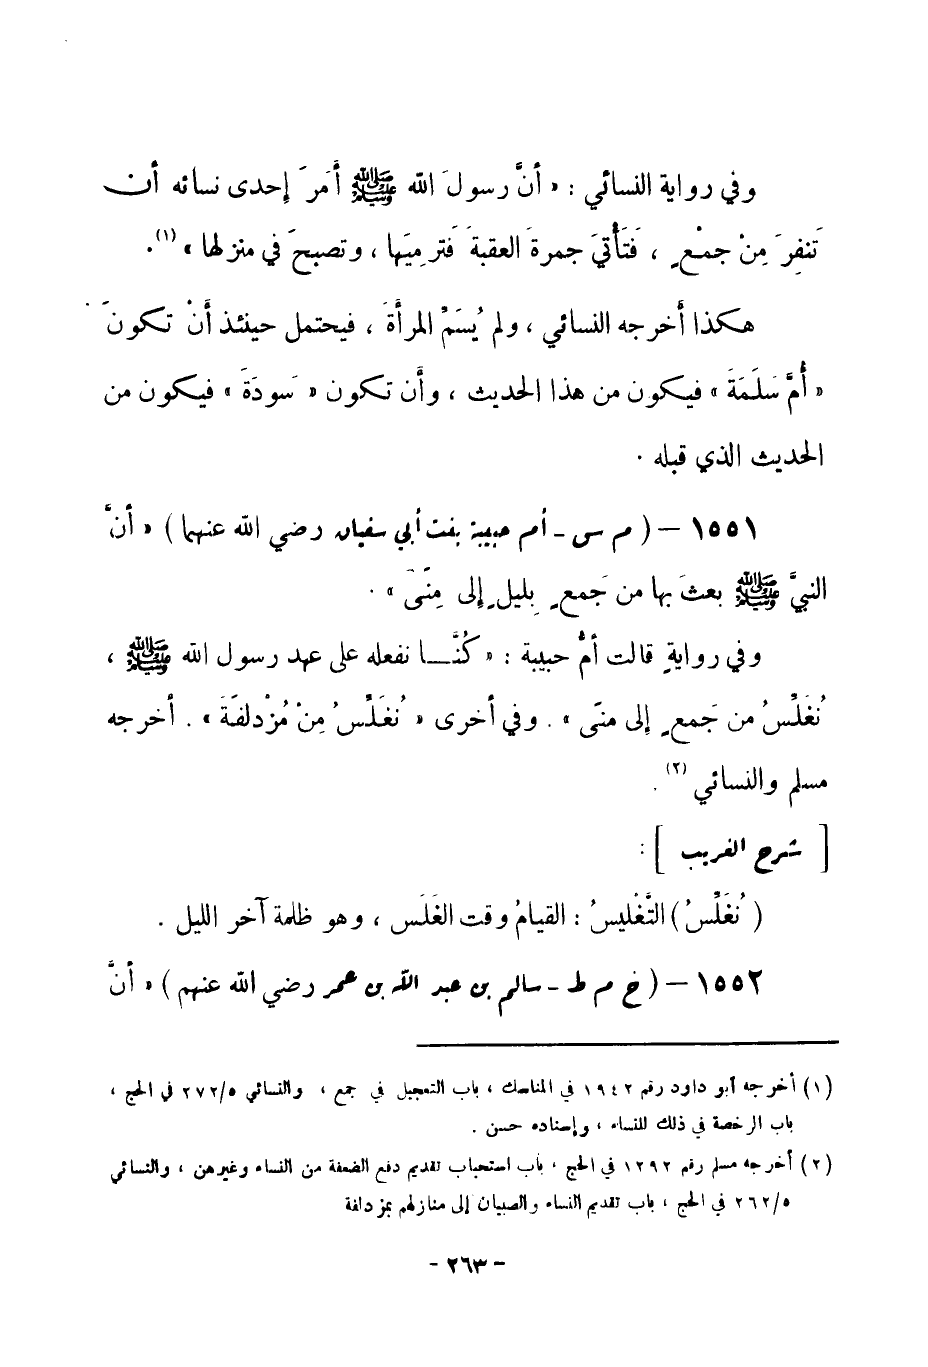 وفي رواية النسائي : « أنَّ رسولَ الله ﷺ أَمَرَ إِحدى نسائه أن
تَنفِرَ مِنْ جمْعٍ ، فَتَأْتيَ جمرةَ العقبةَ فترمِيَها ، وتصبحَ في منزلها » (١).
هكذا أخرجه النسائي ، ولم يُسَمِّ المرأةَ ، فيحتمل حينئذ أَنْ تكونَ
« أُمَّ سَلَمَةَ » فيكون من هذا الحديث ، وأَن تكون « سَودَةَ » فيكون من
الحديث الذي قبله .
١٥٥١ – ( م س - أم حبيبة بنت أبي سفيان رضي الله عنهما ) « أنَّ
النبيَّ ﷺ بعثَ بها من جَمعٍ بِليلٍ إِلى مِنًى » .
وفي روايةٍ قالت أُمُّ حبيبة : « كُنَّا نفعله على عهد رسول الله ﷺ ،
نُغَلِّسُ من جَمعٍ إِلى منًى » . وفي أخرى « نُغَلِّسُ مِنْ مُزْدلفَةَ » . أخرجه
مسلم والنسائي (٢) .
[ شرح الغريب ] :
( نُغَلِّسُ ) التَّغْليسُ : القيامُ وقت الغَلَس ، وهو ظلمة آخر الليل .
١٥٥٢ – ( خ م ط - سالم بن عبد الله بن عمر رضي الله عنهم ) « أنَّ
(١) أخرجه أبو داود رقم ١٩٤٢ في المناسك ، باب التعجيل في جمع ، والنسائي ٢٧٢/٥ في الحج ،
باب الرخصة في ذلك للنساء ، وإسناده حسن .
(٢) أخرجه مسلم رقم ١٢٩٢ في الحج ، باب استحباب تقديم دفع الضعفة من النساء وغيرهن ، والنسائي
٢٦٢/٥ في الحج ، باب تقديم النساء والصبيان إلى منازلهم بمزدلفة
- ٢٦٣ -